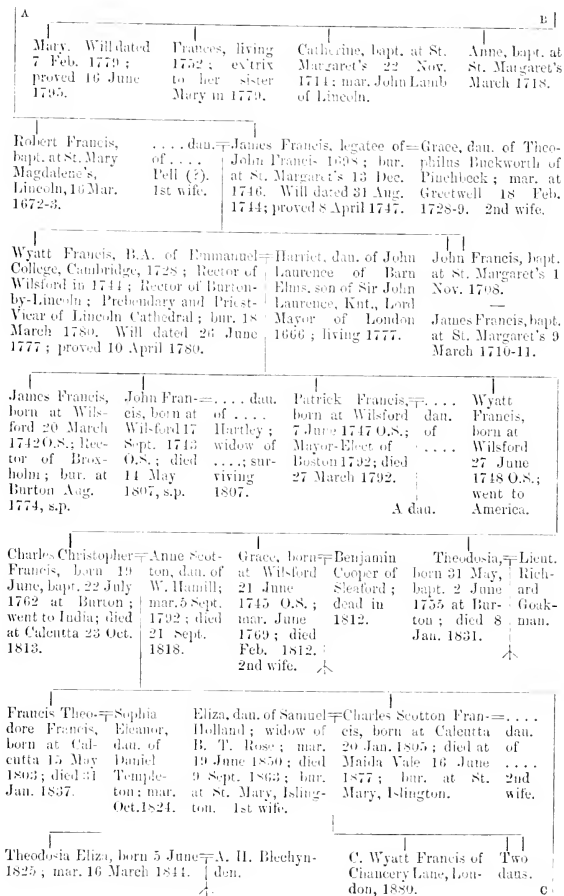 A B
Mary. Will dated
7 Feb. 1779 ;
proved 16 June
1795.
Frances, living
1752 ; ex'trix
to her sister
Mary in 1779.
Catherine, bapt. at St.
Margaret's 22 Nov.
1714 ; mar. John Lamb
of Lincoln.
Anne, bapt. at
St. Margaret's
March 1718.
Robert Francis,
bapt. at St. Mary
Magdalene's,
Lincoln, 16 Mar.
1672-3.
. . . . dau.
of . . . .
Pell (?).
1st wife.
James Francis, legatee of
John Francis 1698 ; bur.
at St. Margaret's 13 Dec.
1746. Will dated 31 Aug.
1744; proved 8 April 1747.
Grace, dau. of Theo-
philus Buckworth of
Pinchbeck ; mar. at
Greetwell 18 Feb.
1728-9. 2nd wife.
Wyatt Francis, B.A. of Emmanuel
College, Cambridge, 1728 ; Rector of
Wilsford in 1744 ; Rector of Burton-
by-Lincoln ; Prebendary and Priest-
Vicar of Lincoln Cathedral ; bur. 18
March 1780. Will dated 26 June
1777 ; proved 10 April 1780.
Harriet, dau. of John
Laurence of Barn
Elms, son of Sir John
Laurence, Knt., Lord
Mayor of London
1666 ; living 1777.
John Francis, bapt.
at St. Margaret's 1
Nov. 1708.
—
James Francis, bapt.
at St. Margaret's 9
March 1710-11.
James Francis,
born at Wils-
ford 20 March
1742 O.S.; Rec-
tor of Brox-
holm ; bur. at
Burton Aug.
1774, s.p.
John Fran-
cis, born at
Wilsford 17
Sept. 1743
O.S. ; died
14 May
1807, s.p.
. . . . dau.
of . . . .
Hartley ;
widow of
. . . . ; sur-
viving
1807.
Patrick Francis,
born at Wilsford
7 June 1747 O.S.;
Mayor-Elect of
Boston 1792; died
27 March 1792.
. . . .
dau.
of
. . . .
A dau.
Wyatt
Francis,
born at
Wilsford
27 June
1748 O.S.;
went to
America.
Charles Christopher
Francis, born 19
June, bapt. 22 July
1762 at Burton ;
went to India; died
at Calcutta 23 Oct.
1813.
Anne Scot-
ton, dau. of
W. Hamill;
mar. 5 Sept.
1792 ; died
21 Sept.
1818.
Grace, born
at Wilsford
21 June
1745 O.S. ;
mar. June
1769 ; died
Feb. 1812.
2nd wife.
Benjamin
Cooper of
Sleaford ;
dead in
1812.
Theodosia,
born 31 May,
bapt. 2 June
1755 at Bur-
ton ; died 8
Jan. 1831.
Lieut.
Rich-
ard
Goak-
man.
Francis Theo-
dore Francis,
born at Cal-
cutta 15 May
1803; died 31
Jan. 1837.
Sophia
Eleanor,
dau. of
Daniel
Temple-
ton ; mar.
Oct. 1824.
Eliza, dau. of Samuel
Holland ; widow of
B. T. Rose ; mar.
19 June 1850 ; died
9 Sept. 1863 ; bur.
at St. Mary, Isling-
ton. 1st wife.
Charles Scotton Fran-
cis, born at Calcutta
20 Jan. 1805 ; died at
Maida Vale 16 June
1877 ; bur. at St.
Mary, Islington.
. . . .
dau.
of
. . . .
2nd
wife.
Theodosia Eliza, born 5 June
1825 ; mar. 16 March 1844.
A. H. Blechyn-
den.
C. Wyatt Francis of
Chancery Lane, Lon-
don, 1889.
Two
daus.
C